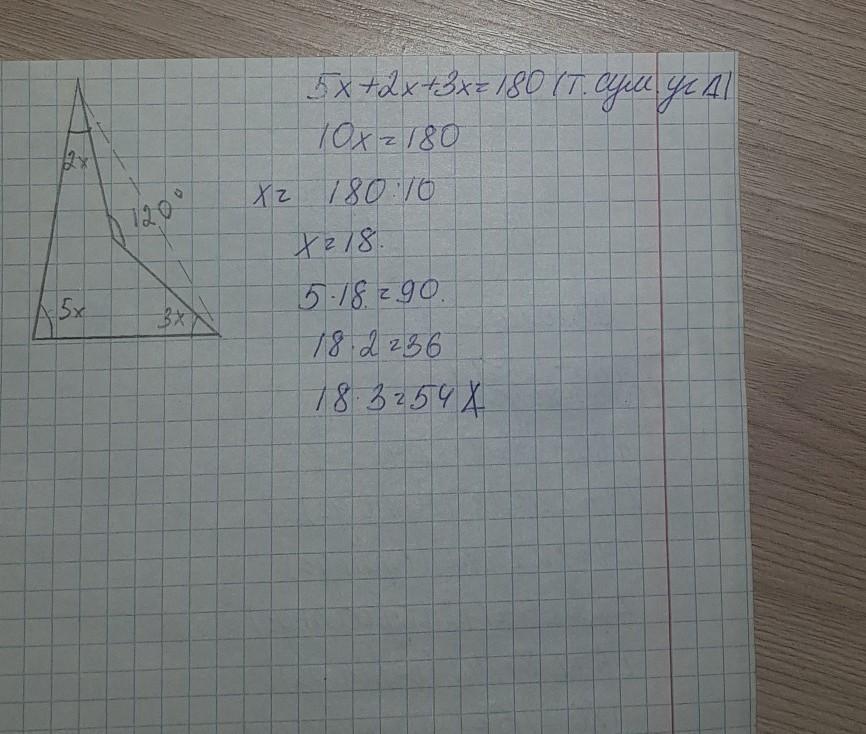 5x+2x+3x=180 (т. сум. уг Δ)
10x=180
x= 180:10
x=18.
5·18=90.
18·2=36
18·3=54
2x
120°
5x
3x